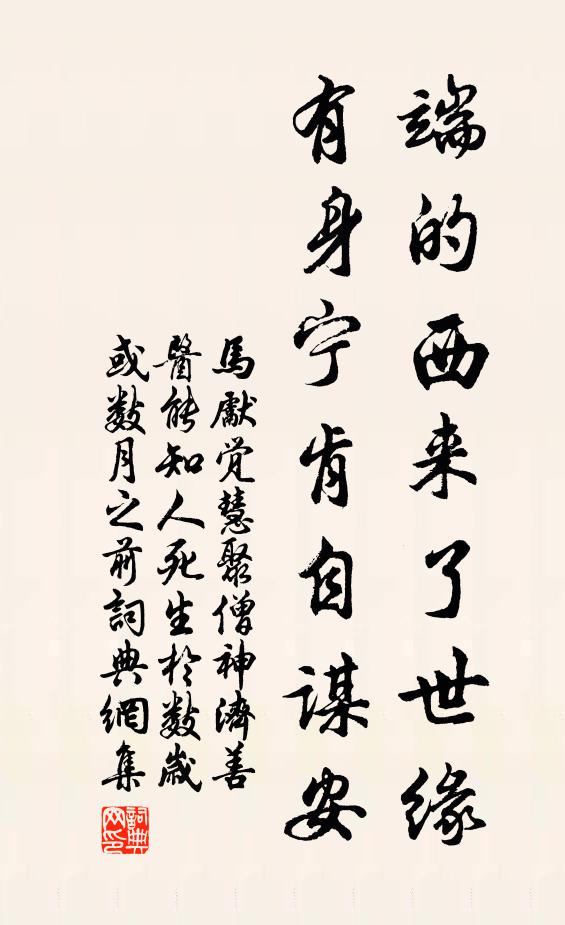 端的西来了世缘
有身宁肯自谋安
馬獻覚慧聚僧神濟善
醫能知人死生於数歲
或数月之前詞典網集
詞典网印